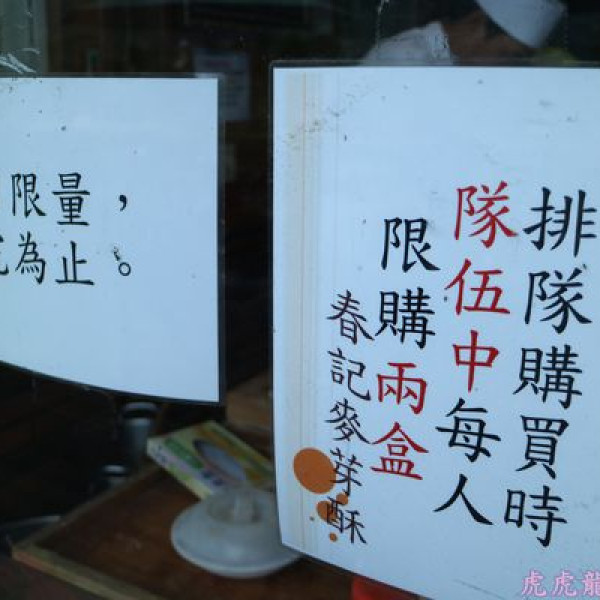 限量，
為止。
排隊購買時
隊伍中每人
限購兩盒
春記麥芽酥
虎虎龍